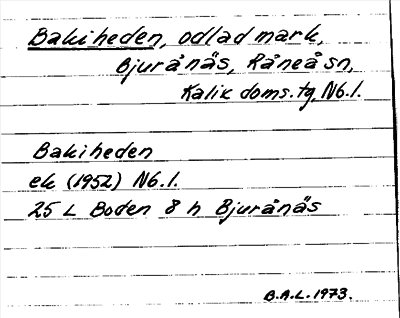 Bakiheden, odlad mark,
Bjurånäs, Råneå sn,
Kalix doms. tg, Nb. l.
Bakiheden
ek (1952) Nb. l.
25 L Boden 8 h Bjurånäs
B.A.L. 1973.